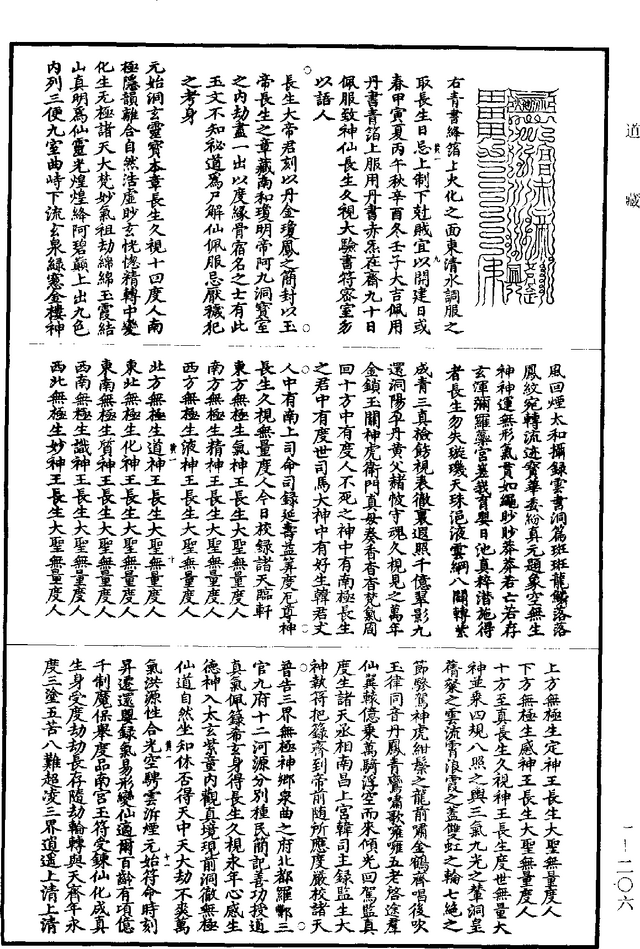 道藏
右青書絳箔上大化之面東清水調服之
取長生日忌上制下尅賊宜以開建日或
春甲寅夏丙午秋辛酉冬壬子大吉佩用
丹書青箔上服用丹書赤在齋九十日
佩服致神仙長生久視大驗書符密室勿
以語人
長生大帝君刻以丹金瓊鳳之簡封以玉
帝長生之章藏南和瓊明帝阿九洞寶室
之内劫盡一出以度緣骨宿名之士有此
玉文不知祕道爲尸解仙佩服忌厭穢犯
之考身
元始洞玄靈寶本章長生久視十四度人南
極隱韻離合自然浩虛眇玄恍惚精轉中變
化生無極諸天大梵妙氣祖劫綿綿玉霞結
山真明爲仙靈光煌煌絳阿碧巔上出九色
内列三便九室曲峙下流玄泉綠塞金樓神
風回煙太和攝錄雲書洞篇斑斑龍鱗落落
鳳紋宛轉流迹寶華委紛真元題象空無生
神神運無形氣貫如繩眇眇莽莽若亡若存
玄渾彌羅藥宮基我育嬰日池真粹潛施得
者長生勿失璇璣天珠浥液雲綱八關轉紫
成青三真檢飭視表徹裏遐照千億翠影九
還洞陽孕丹黃父赭忮守魂久視見之萬年
金鎖玉關神虎衛門真母奏香杳杳梵氣周
回十方中有度人不死之神中有南極長生
之君中有度世司馬大神中有好生韓君丈
人中有南上司命司錄延壽益算度厄尊神
長生久視無量度人今日校錄諸天臨軒
東方無極生氣神王長生大聖無量度人
南方無極生精神王長生大聖無量度人
西方無極生液神王長生大聖無量度人
北方無極生道神王長生大聖無量度人
東北無極生化神王長生大聖無量度人
東南無極生質神王長生大聖無量度人
西南無極生識神王長生大聖無量度人
西北無極生妙神王長生大聖無量度人
上方無極生定神王長生大聖無量度人
下方無極生感神王長生大聖無量度人
十方至真長生久視神王長生度世無量大
神並乘四規八照之輿三氣九光之輦洞皇
喬粲之雲流霄浪霞之蓋雙虹之輪七絕之
節驂駕神虎紺鬃之龍前嘯金鶴齊唱後吹
玉律同音丹鳳青鸞嘯歌嗈嗈五老啓途羣
仙翼轅億乘萬騎浮空而來傾光回駕監真
度生諸天丞相南昌上宮韓司主錄監生大
神執符把籙齊到帝前隨所應度嚴校諸天
普告三界無極神鄉泉曲之府北都羅酆三
官九府十二河源分別種民簡記善功授道
真氣佩錄希玄身得長生久視永年心感生
德神入太玄紫童内觀真境現前洞徹無極
仙道自然坐知休否得天中天大劫不爽萬
氣洪源性合光空騁雲泝煙元始符命時刻
昇遷還與錄氣易形變仙適爾百齡有頃億
千制魔保舉度品南宮玉符受鍊仙化成真
生身受度劫劫長存隨劫輪轉與天齊年永
度三塗五苦八難超凌三界逍遥上清上清
一一二〇六